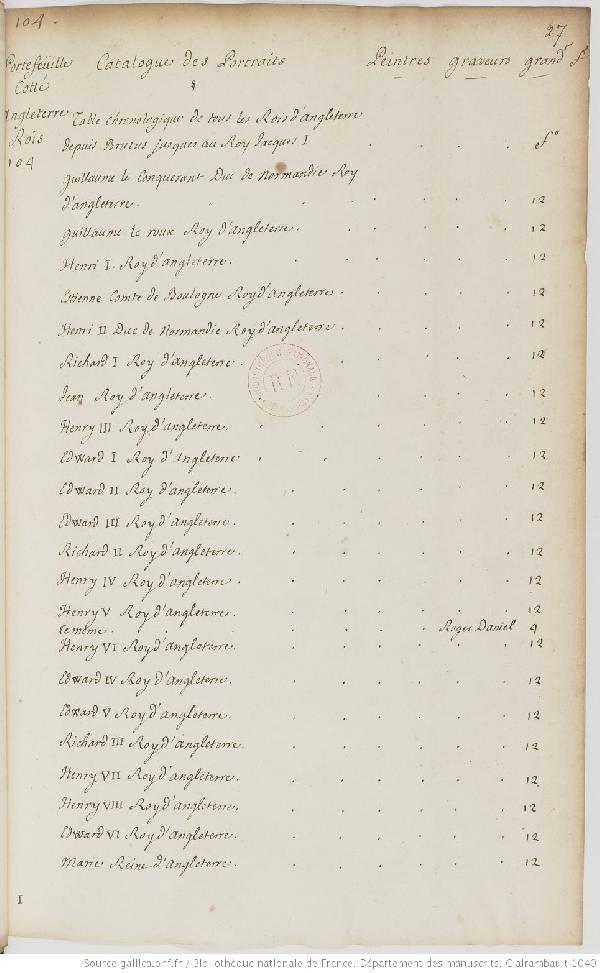 104.
27
Portefeüille Catalogue des Portraits Peintres graveurs grandr
Cotté §
Angleterre Table chronologique de tous les Rois d'angleterre
Rois depuis Brutus jusques au Roy Jacques I . . . . fo
104
guillaume le Conquerant Duc de Normandie Roy
d'angleterre. . . . . . 12
guillaume le roux Roy d'angleterre. . . . . . 12
Henri I. Roy d'angleterre. . . . . . 12
Estienne Comte de Boulogne Roy d'angleterre. . . . . 12
Henri II Duc de Normandie Roy d'angleterre. . . . . 12
Richard I Roy d'angleterre. . . . . 12
Jean Roy d'angleterre. . . . . 12
Henry III Roy d'angleterre. . . . . . 12
Edward I Roy d'Angleterre . . . . . . 12
Edward II Roy d'angleterre. . . . . . 12
Edward III Roy d'angleterre. . . . . . 12
Richard II Roy d'angleterre. . . . . . 12
Henry IV Roy d'angleterre. . . . . . 12
Henry V Roy d'angleterre. . . . . . 12
le meme. . . . Roger Daniel 4
Henry VI Roy d'angleterre. . . . . . 12
Edward IV Roy d'angleterre. . . . . . 12
Edward V Roy d'angleterre. . . . . . 12
Richard III Roy d'angleterre. . . . . . 12
Henry VII Roy d'angleterre. . . . . . 12
Henry VIII Roy d'angleterre. . . . . . 12
Edward VI Roy d'angleterre. . . . . . 12
Marie Reine d'Angleterre. . . . . . 12
I
Source gallica.bnf.fr / Bibliothèque nationale de France. Département des manuscrits. Clairambault 1040